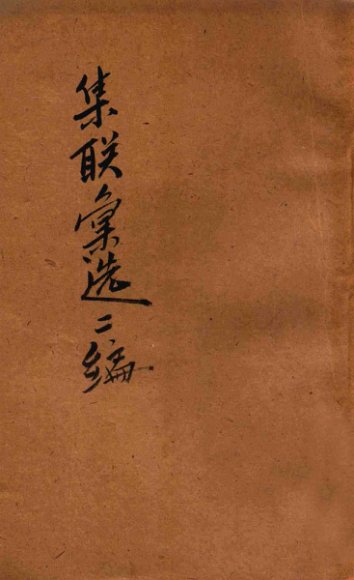 集联彙选二编